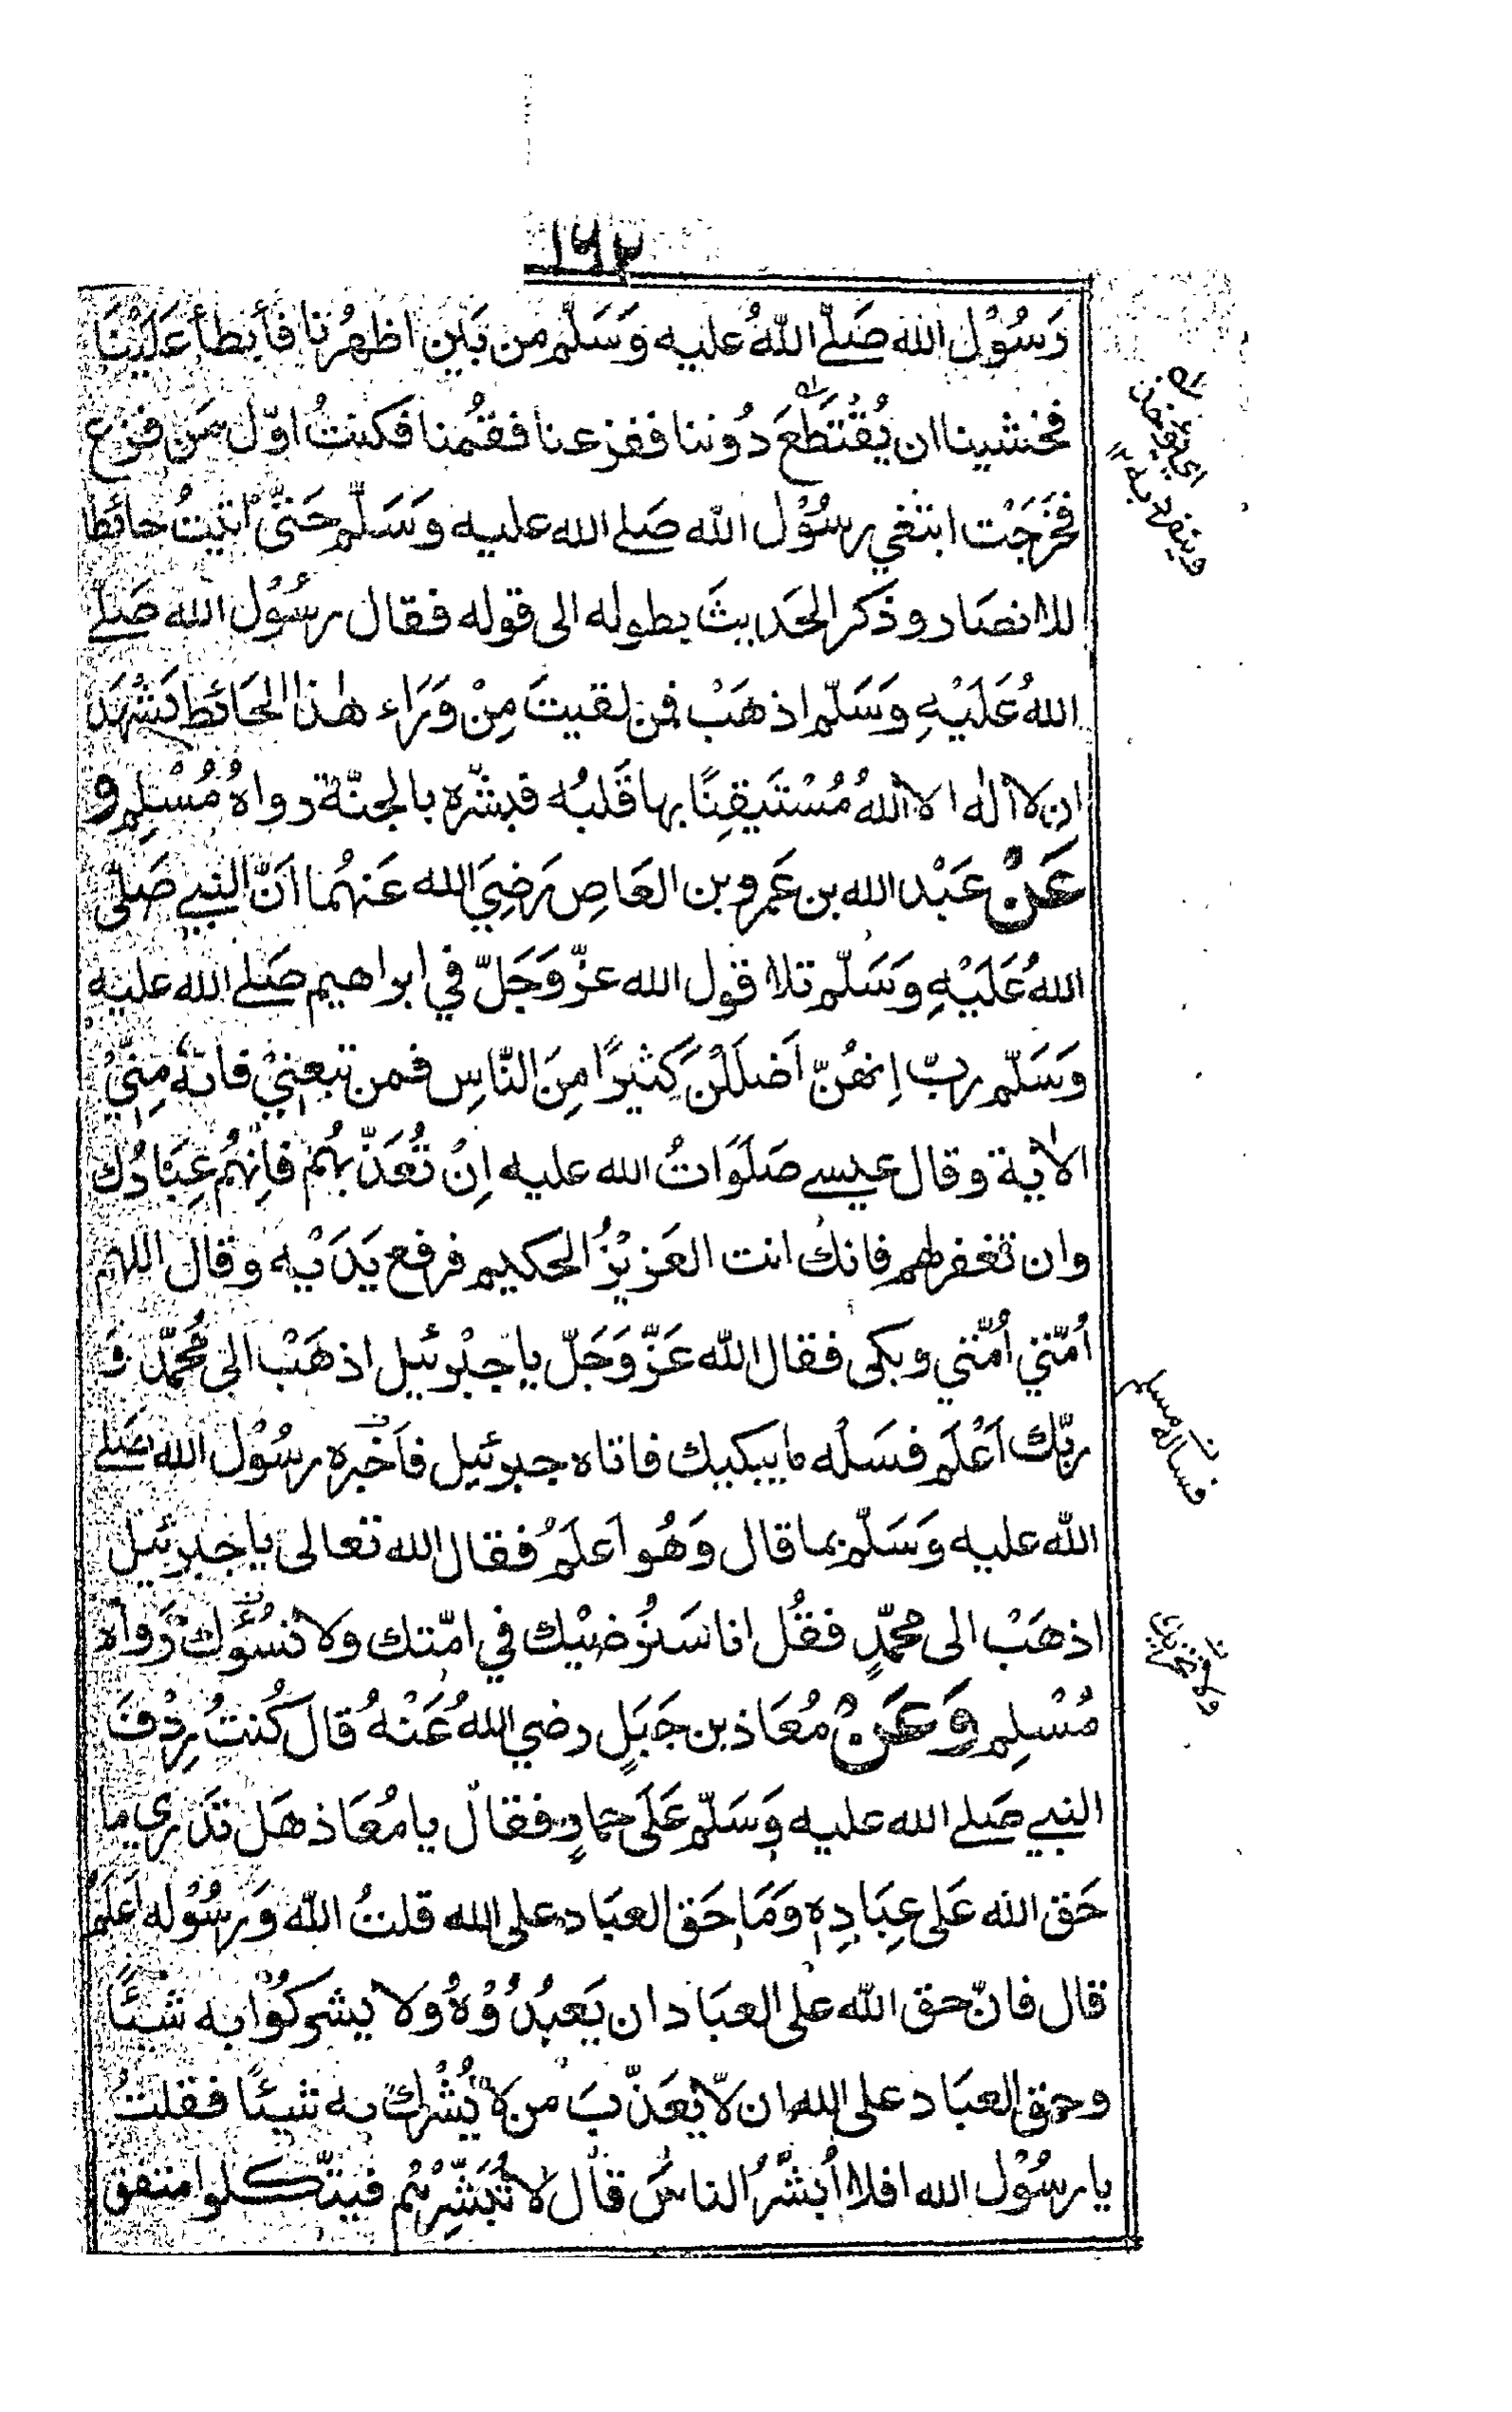 ١٦٢
رَسُوْل الله صَلّے اللهُ عليه وَسَلّم من بَين اظهُرنا فأبطأ عَلَيْنَا
فخشينا ان يُقْتَطَعَ دُوننا ففزعنا فقُمنا فكنتُ اوّل مَن فزع
فخَرَجْت ابتغي رسُوْل الله صَلے الله عليه وسَلّم حَتّى اتيتُ حائطا
للانصَار وذَكر الحَديثَ بطوله الى قوله فقال رسُوْل الله صَلے
اللهُ عَلَيْهِ وَسَلّم اذهَبْ فمن لقيتَ مِنْ وَرَاء هٰذا الحَائط يَشْهَدُ
ان لا اله الا اللهُ مُسْتَيقِنًا بها قَلبُه فبشّره بالجنّة رواهُ مُسْلِم و
عَنْ عَبْد الله بن عَمرو بن العَاصِ رَضِيَ الله عَنهُما انّ النبي صَلّى
اللهُ عَلَيْهِ وَسَلّم تلا قول الله عزّ وَجَلّ في ابراهيم صَلے الله عليه
وَسَلّم ربّ اِنهُنّ اَضلَلْنَ كَثيرًا مِنَ النّاسِ فمن تبعَنِيْ فانهُ مِنّيْ
الاٰية وقال عيسے صَلَوَاتُ الله عليه اِنْ تُعَذّبهُم فاِنهُم عِبَادُك
وان تغفرلهم فانك انت العَزيْزُ الحكيم فرفع يَدَيْه وقال اللهم
اُمّتي اُمّتي وبكى فقال الله عَزّ وَجَلّ يا جبْرئيل اذهَبْ الى مُحمّد وَ
ربّك اَعْلَم فسَلْه ما يبكيك فاتاه جبرئيل فاَخبره رسُوْل الله صَلے
الله عليه وَسَلّم بما قال وَهُو اَعلَمُ فقال الله تعالى يا جبرئيل
اذهَبْ الى محمّدٍ فقُل انا سَنُرْضيْك في امّتك ولا نسُوْك رَواه
مُسْلِم وَعَنْ مُعَاذ بن جَبَلٍ رضي اللهُ عَنْهُ قال كُنتُ رِدْفَ
النبي صَلے الله عليه وَسَلّم عَلَى حمارٍ فقال يا مُعَاذ هَل تَدْري ما
حَق الله عَلى عِبَادِه وَمَا حَق العبَاد على الله قلتُ الله وَرسُوْله اَعلَم
قال فانّ حق الله على العبَاد ان يَعبُدُوْهُ ولا يشركُوْا به شَئًا
وحق العبَاد على الله ان لّا يعَذّبَ من لا يُشْرِك به شيئًا فقلتُ
يا رسُوْل الله افلا اُبَشّرُ الناسَ قال لا تُبَشّرْهُم فيتّكلوا متفق
فساله مسلم
ولا نحزنك